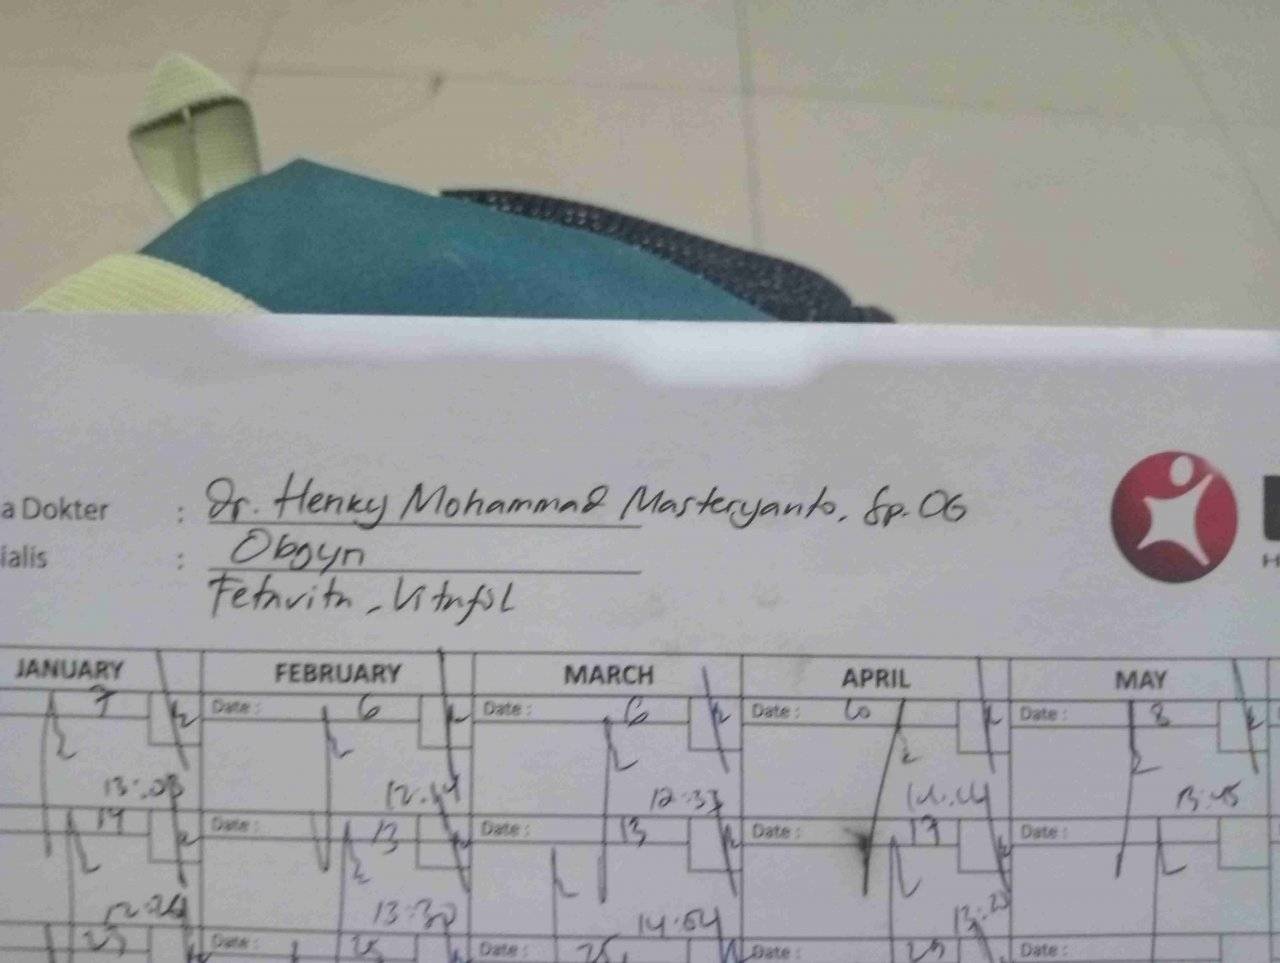 a Dokter : Dr. Henky Mohammad Masteryanto, Sp.OG
ialis : Obgyn
Fetavita, Vitafol
JANUARY FEBRUARY MARCH APRIL MAY
7 Date : 6 Date : 6 Date : 10 Date : 8
13:08 12:34 12:33 14:44 13:45
14 Date : 13 Date : 13 Date : 17 Date :
12:24 13:30 14:54 13:23
23 Date : 25 Date : 25 Date : 29 Date :